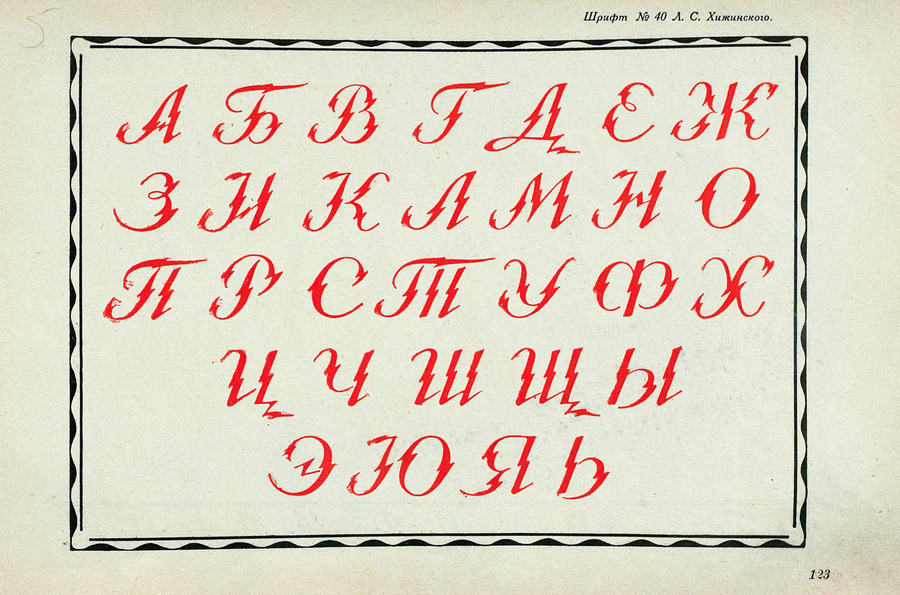 Шрифт № 40 Л. С. Хижинского.
А Б В Г Д Е Ж
З И К Л М Н О
П Р С Т У Ф Х
Ц Ч Ш Щ Ы
Э Ю Я Ь
123